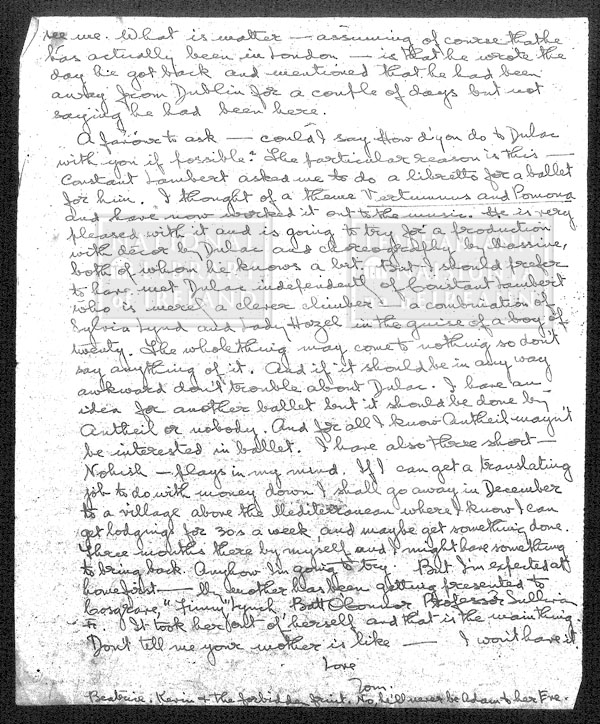 see me. What is matter — assuming of course that he
has actually been in London — is that he wrote the
day he got back and mentioned that he had been
away from Dublin for a couple of days but not
saying he had been here.
A favour to ask — could I say How d'you do to Dulac
with you if possible? The particular reason is this —
Constant Lambert asked me to do a libretto for a ballet
for him. I thought of a theme Vertumnus and Pomona
and have now worked it out to the music. He is very
pleased with it and is going to try for a production
with décor by Dulac and choreography by Massine,
both of whom he knows a bit. But I should prefer
to have met Dulac independent of Constant Lambert
who is mere a clever climber — a combination of
Sylvia Lynd and Lady Hazel in the guise of a boy of
twenty. The whole thing may come to nothing so don't
say anything of it. And if it should be in any way
awkward don't trouble about Dulac. I have an
idea for another ballet but it should be done by
Antheil or nobody. And for all I know Antheil mayn't
be interested in ballet. I have also three short —
Nohish — plays in my mind. If I can get a translating
job to do with money down I shall go away in December
to a village above the Mediterranean where I know I can
get lodging for 30s a week, and maybe get something done.
Three months there by myself and I might have something
to bring back. Anyhow I'm going to try. But I'm expected at
home first — My mother has been getting presented to
Cosgrave, "Finny" Lynch Batt O'Connor Professor Sullivan
It took her out of herself and that is the main thing.
Don't tell me your mother is like — I won't have it.
Love
Tom.
Beatrice, Kevin & the forbidden fruit. No, he'll never be Adam to her Eve.
NATIONAL LIBRARY of IRELAND